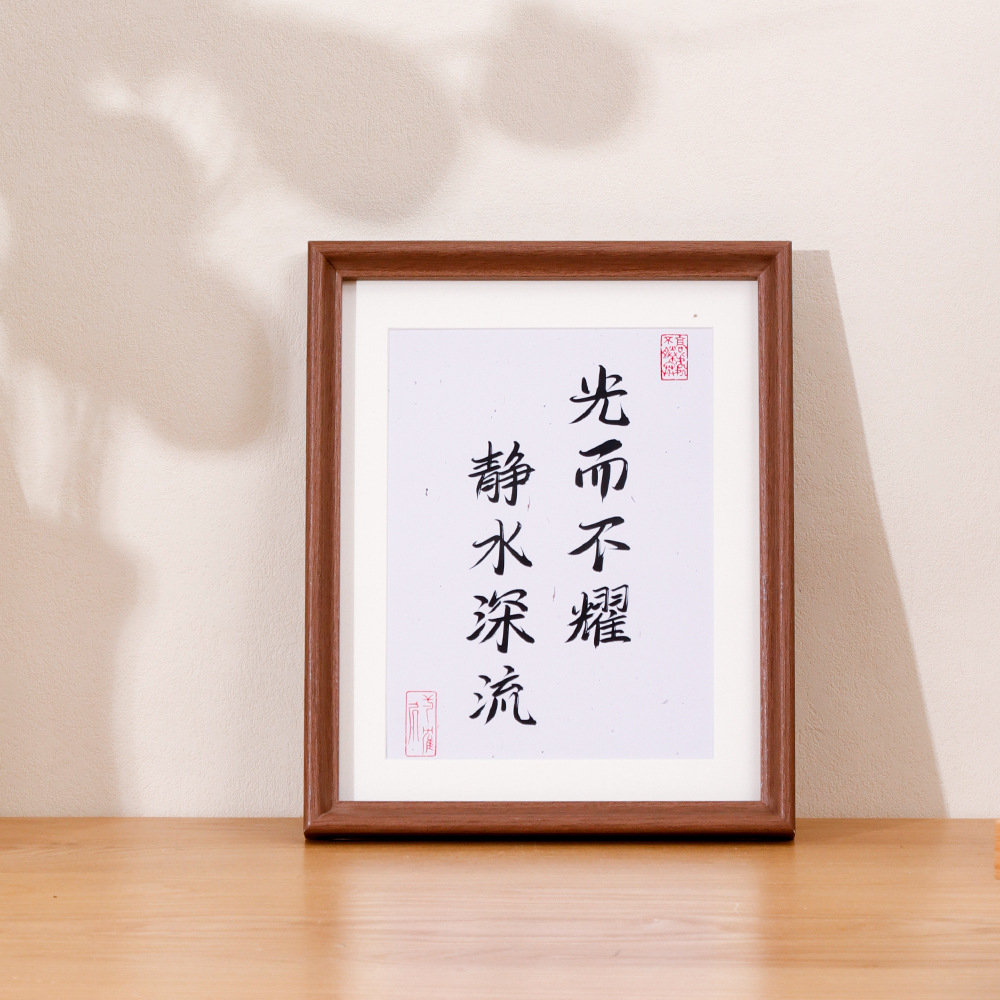 光而不耀
静水深流